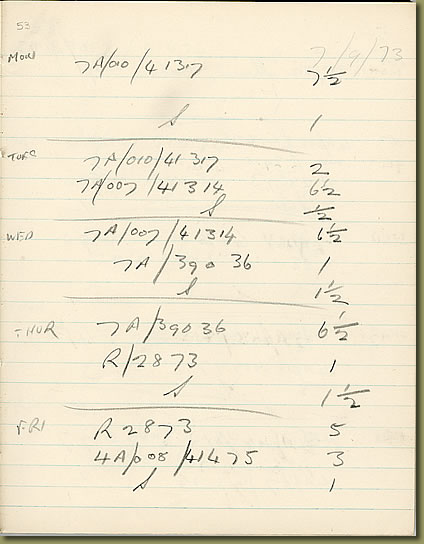 53
7/9/73
MON 7A/010/41317 7½
S 1
TUE 7A/010/41317 2
7A/007/41314 6½
S ½
WED 7A/007/41314 6½
7A/39036 1
S 1½
THUR 7A/39036 6½
R/2873 1
S 1½
FRI R2873 5
4A/008/41475 3
S 1